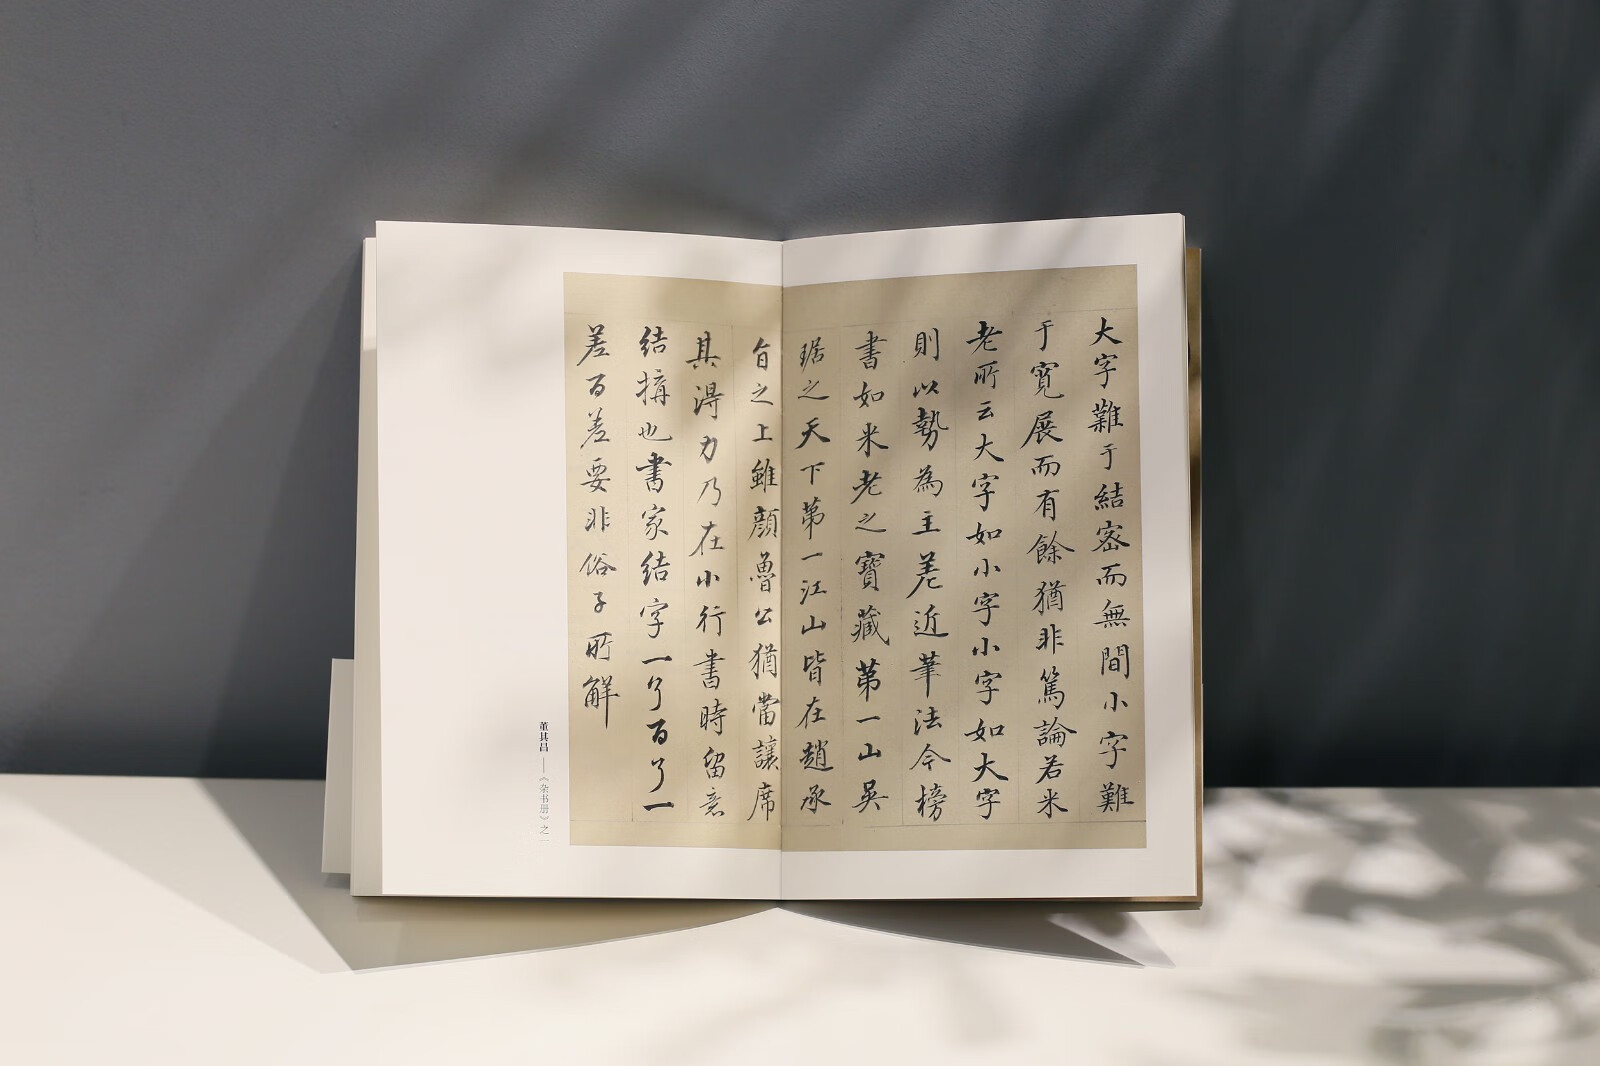 大字難于結密而無間小字難
于寬展而有餘猶非篤論若米
老所云大字如小字小字如大字
則以勢為主差近筆法今榜
書如米老之寶藏第一山吳
琚之天下第一江山皆在趙承
旨之上雖顏魯公猶當讓席
其得力乃在小行書時留意
结構也書家结字一了百了一
差百差要非俗子所解
董其昌——《杂书册》之一